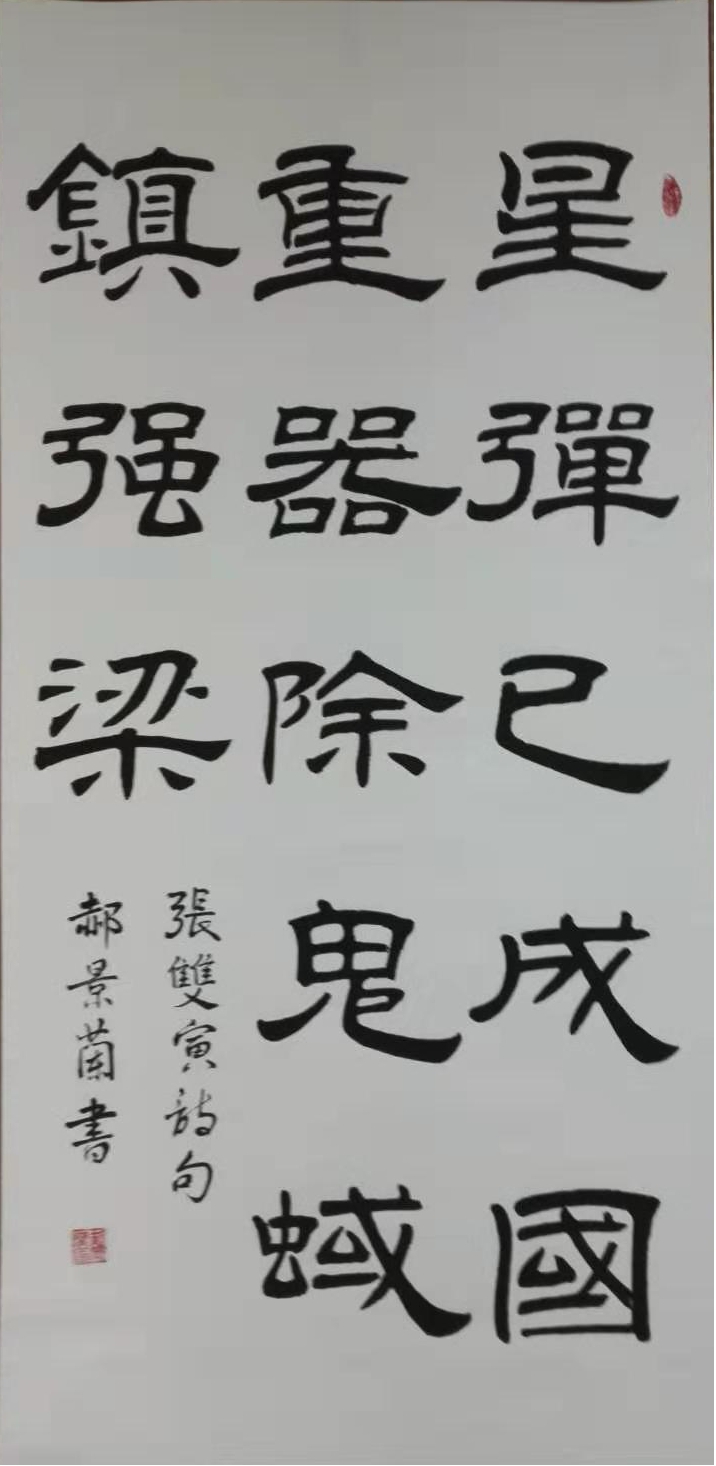 星彈已成國
重器除鬼蜮
鎮强梁
張雙寅詩句
郝景蘭書